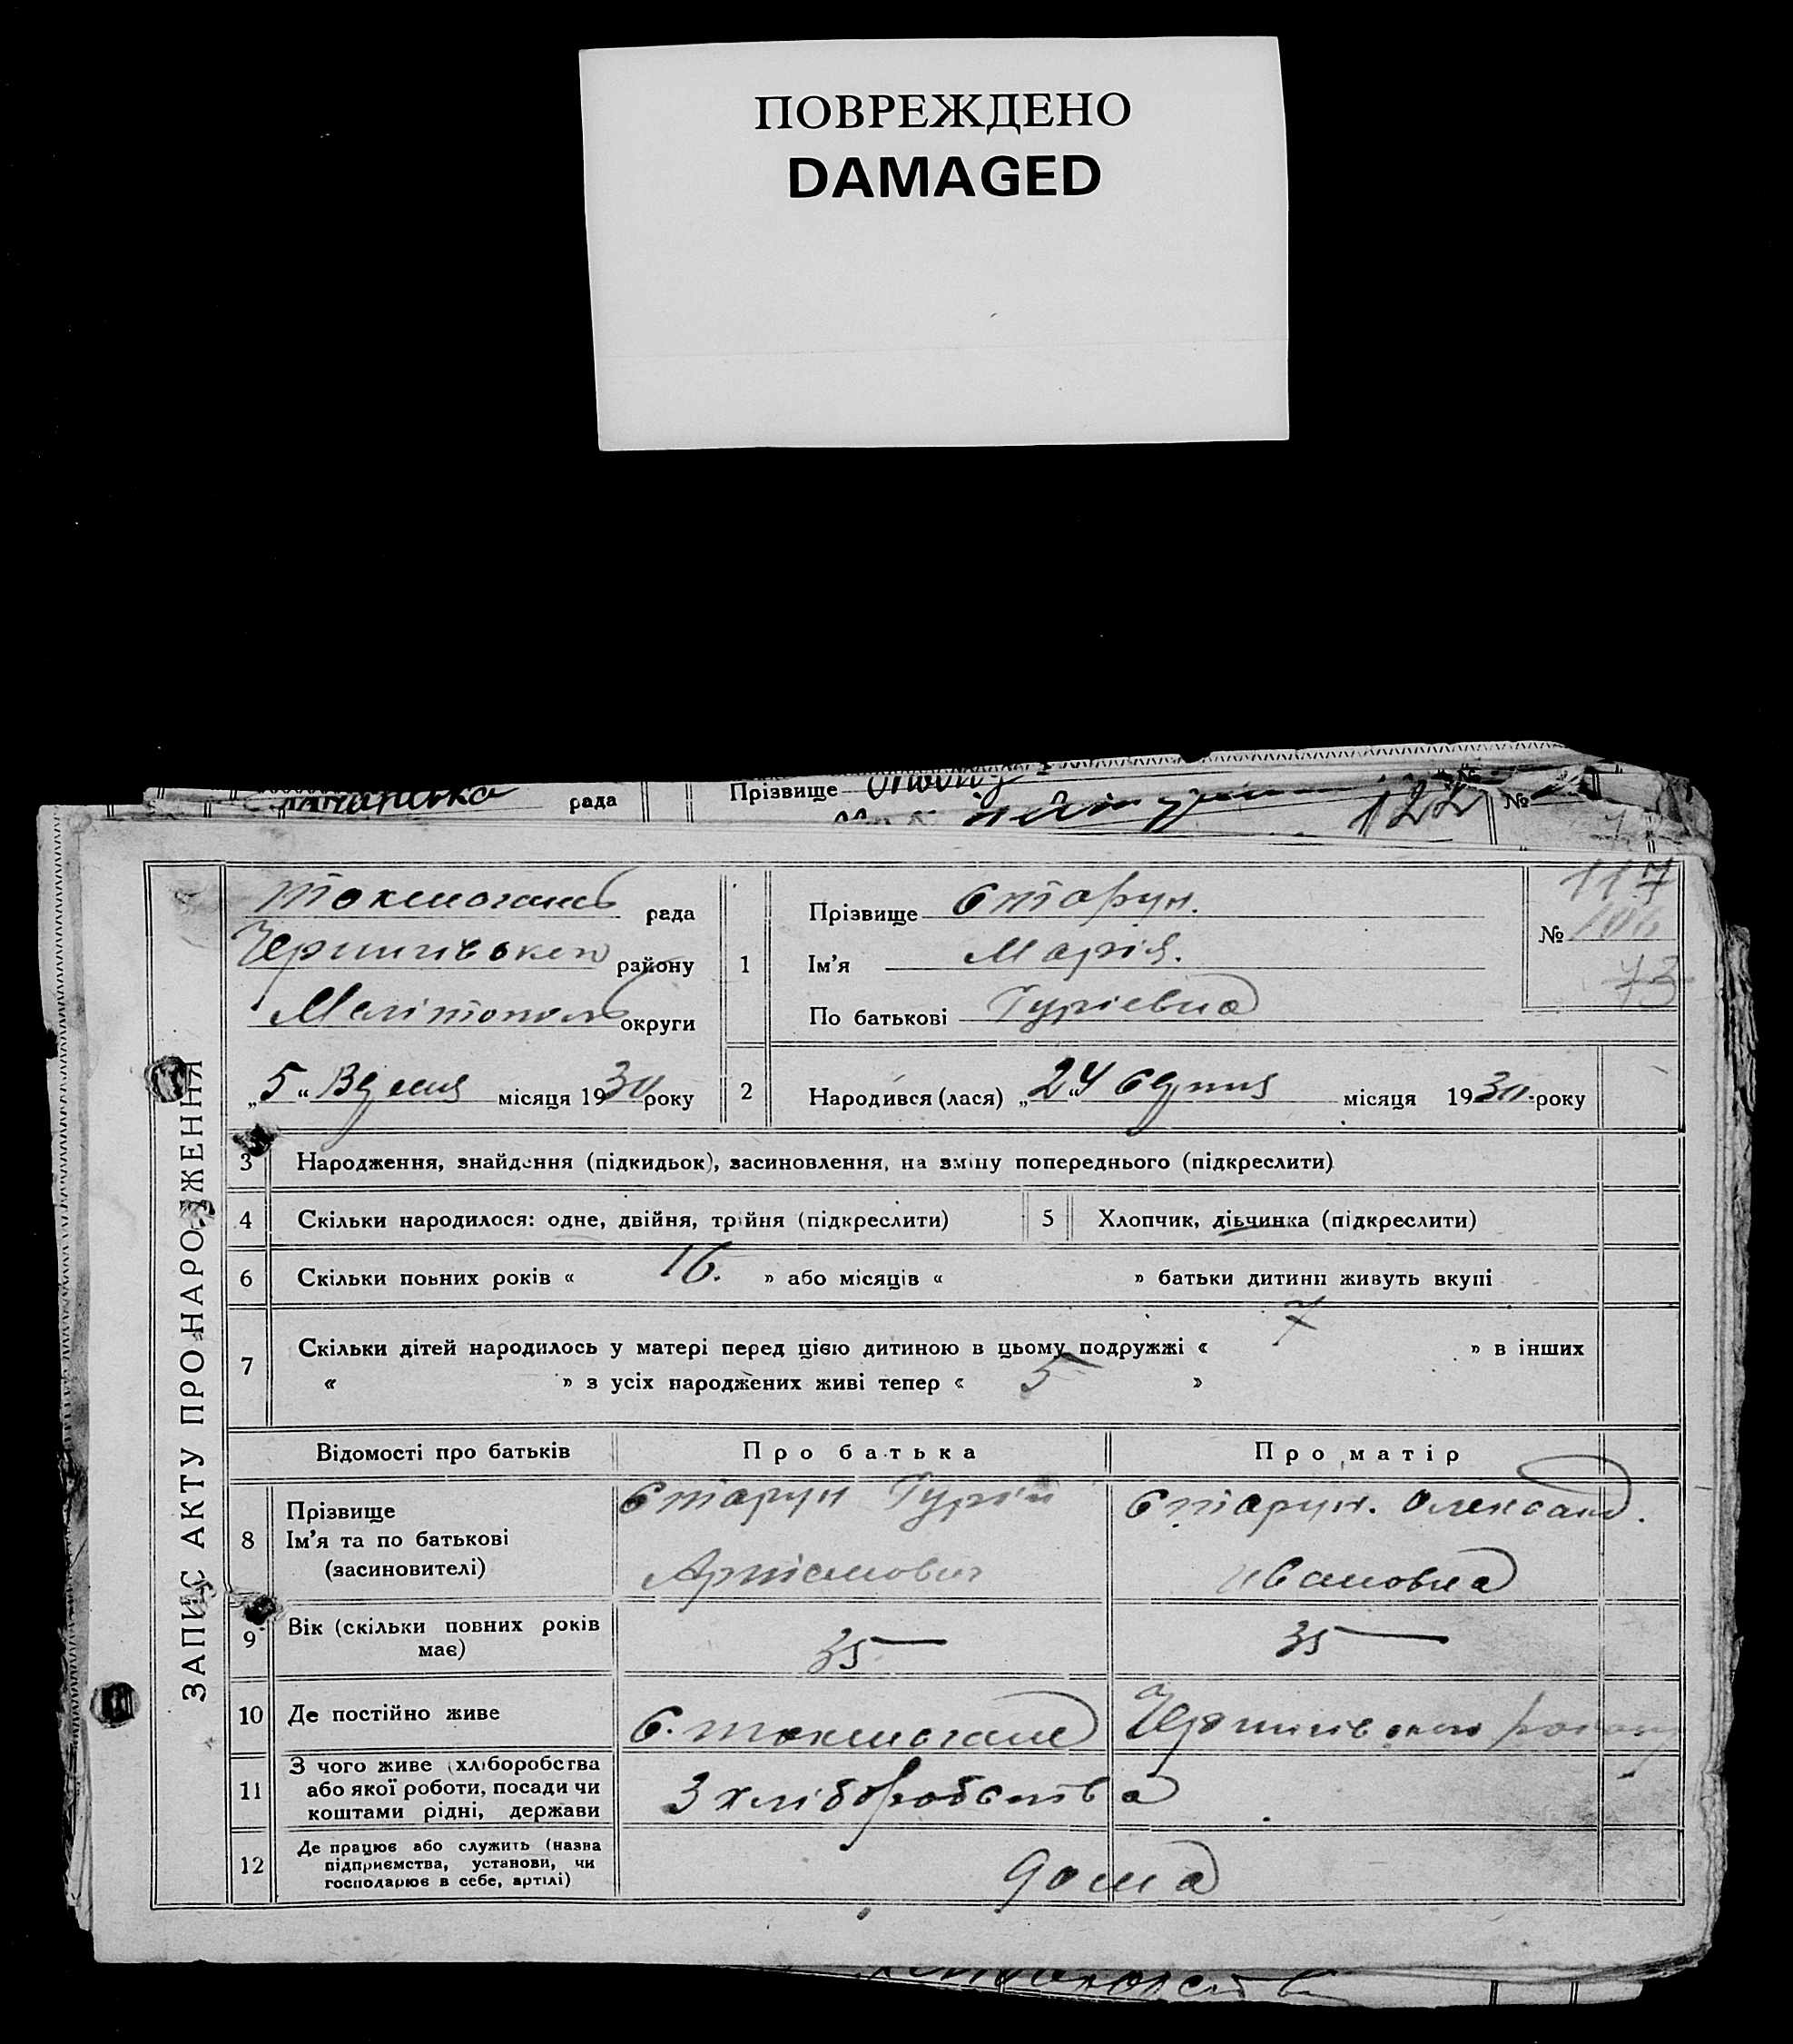 ПОВРЕЖДЕНО
DAMAGED
рада
Прізвище
122 №
ЗАПИС АКТУ ПРО НАРОДЖЕННЯ
Токмогань рада
Чернигівокого району
Мелітополь округи
„5“ місяця 1930 року
1
Прізвище Старун.
Ім’я Марія.
По батькові Гуріевна
117
№ 106
73
2 Народився (лася) „24“ місяця 1930. року
3 Народження, знайдення (підкидьок), засиновлення, на зміну попереднього (підкреслити)
4 Скільки народилося: одне, двійня, трійня (підкреслити) 5 Хлопчик, дівчинка (підкреслити)
6 Скільки повних років « 16. » або місяців « » батьки дитини живуть вкупі
7 Скільки дітей народилось у матері перед цією дитиною в цьому подружжі « 7 » в інших
« » з усіх народжених живі тепер « 5 »
Відомості про батьків Про батька Про матір
8 Прізвище
Ім’я та по батькові
(засиновителі)
Старун Гурій
Артіамович
Старун. Олександ.
ивановна
9 Вік (скільки повних років має) 35 35
10 Де постійно живе С. токмогане
11 З чого живе (хліборобства
або якої роботи, посади чи
коштами рідні, держави
З хліборобства
12 Де працює або служить (назва
підприємства, установи, чи
господарює в себе, артілі)
дома